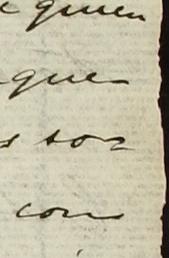 quien
que
son
con